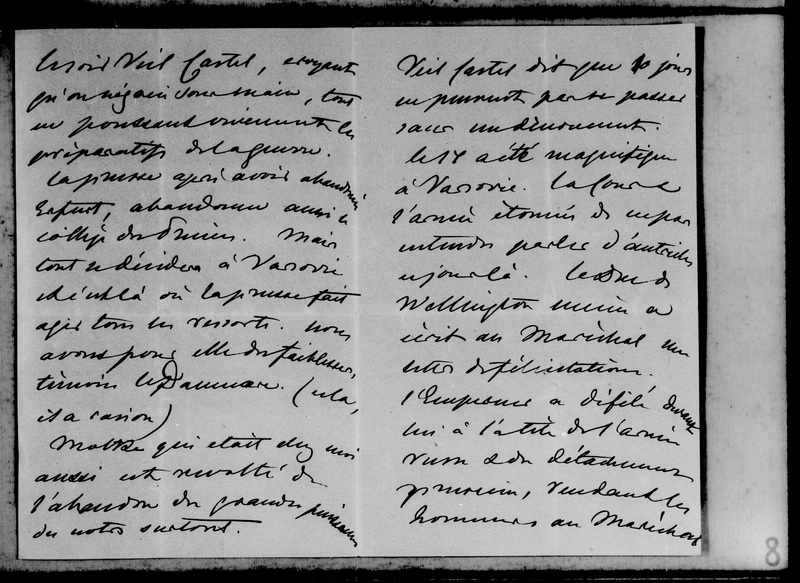 le soir Viel Castel, croyant
qu'on négocie sous main, tout
en poussant vivement les
préparatifs de la guerre.
La prusse après avoir abandonné
Erfurt, abandonne aussi le
collège des Princes. Mais
tout se décidera à Varsovie
et c'est là où la prusse fait
agir tous les ressorts. nous
avons pour elle des faiblesses,
témoin le Dannmarc. (en cela,
il a raison)
Moltke qui était chez moi
aussi est révolté de
l'abandon des grandes puissances
du notre surtout.
Viel Castel dit que 10 jours
ne peuvent pas se passer
sans un dénouement.
le 18 a été magnifique
à Varsovie. La Cour &
l'armée étonnés de ne pas
entendre parler d'autriche
ce jour là. Le Duc de
Wellington même a
écrit au Maréchal une
lettre de félicitations.
l'Empereur a défilé devant
lui à la tête de l'armée
russe & du détachement
prussien, rendant les
hommes au Maréchal
8